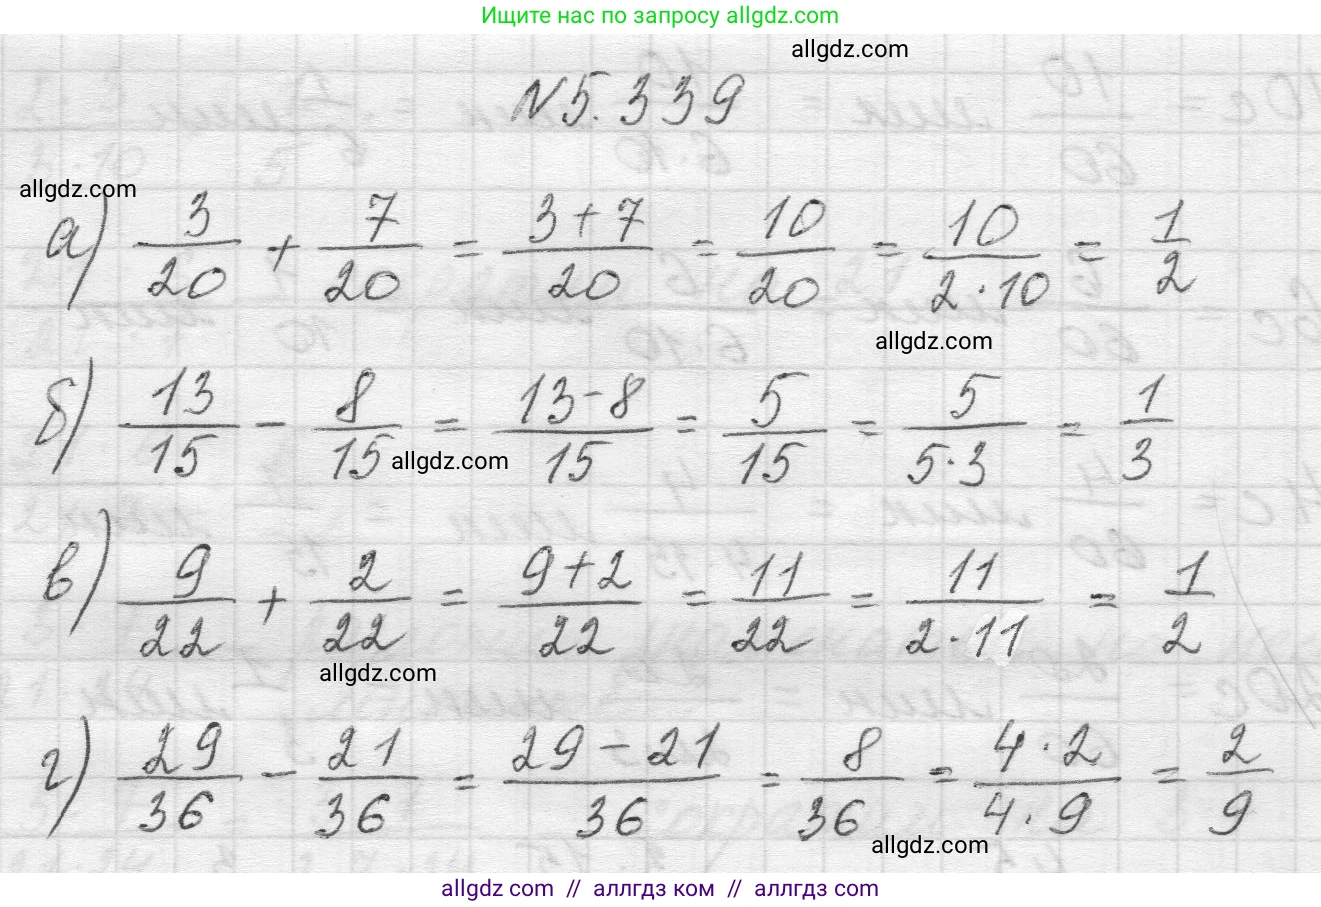 Ищите нас по запросу allgdz.com
allgdz.com
№5.339
allgdz.com
а) 3/20 + 7/20 = 3+7/20 = 10/20 = 10/2·10 = 1/2
allgdz.com
б) 13/15 - 8/15 = 13-8/15 = 5/15 = 5/5·3 = 1/3
allgdz.com
в) 9/22 + 2/22 = 9+2/22 = 11/22 = 11/2·11 = 1/2
allgdz.com
г) 29/36 - 21/36 = 29-21/36 = 8/36 = 4·2/4·9 = 2/9
allgdz.com
allgdz com // аллгдз ком // аллгдз com